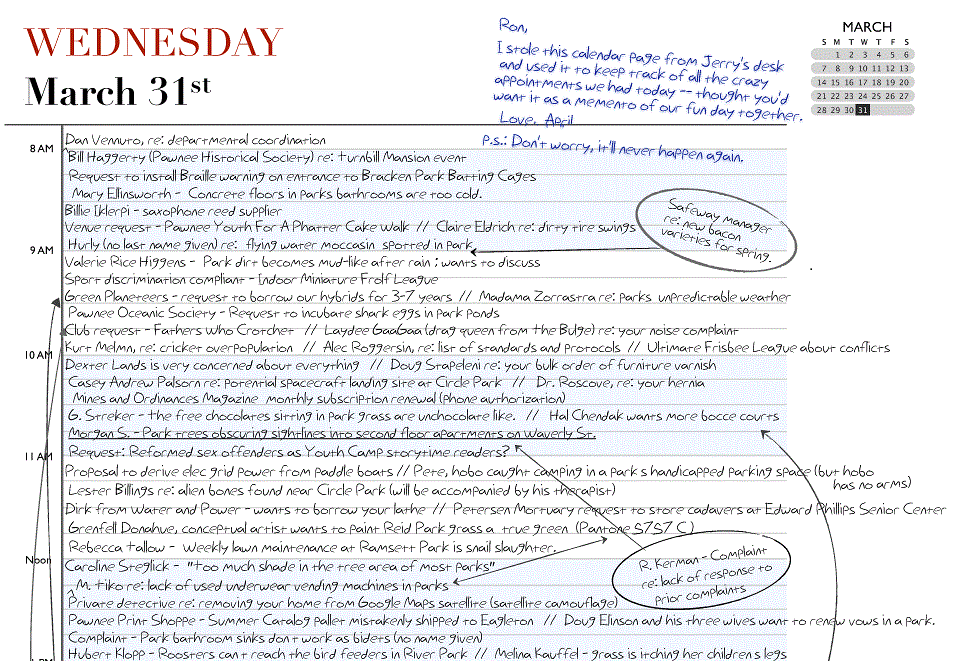 WEDNESDAY
March 31st
Ron,
I stole this calendar page from Jerry's desk
and used it to keep track of all the crazy
appointments we had today -- thought you'd
want it as a memento of our fun day together.
Love, April
P.s.: Don't worry, it'll never happen again.
MARCH
S M T W T F S
1 2 3 4 5 6
7 8 9 10 11 12 13
14 15 16 17 18 19 20
21 22 23 24 25 26 27
28 29 30 31
Dan Vennuto, re: departmental coordination
8 AM
Bill Haggerty (Pawnee Historical Society) re: turnbill Mansion event
Request to install Braille warning on entrance to Bracken Park Batting Cages
Mary Ellinsworth - Concrete floors in parks bathrooms are too cold.
Billie Iklerpi - saxophone reed supplier
Venue request - Pawnee Youth For A Phatter Cake Walk // Claire Eldrich re: dirty tire swings
Safeway manager
re: new bacon
varieties for spring.
Hurly (no last name given) re: flying water moccasin spotted in park
9 AM
Valerie Rice Higgens - Park dirt becomes mud-like after rain; wants to discuss
Sport discrimination compliant - Indoor Miniature Frolf League
Green Planeteers - request to borrow our hybrids for 3-7 years // Madama Zorrastra re: parks unpredictable weather
Pawnee Oceanic Society - Request to incubate shark eggs in park ponds
Club request - Fathers Who Crotchet // Laydee GaaGaa (drag queen from the Bulge) re: your noise complaint
Kurt Melmn, re: cricket overpopulation // Alec Roggersin, re: list of standards and protocols // Ultimate Frisbee League about conflicts
10 AM
Dexter Lands is very concerned about everything // Doug Stapeleni re: your bulk order of furniture varnish
Casey Andrew Palsorn re: potential spacecraft landing site at Circle Park // Dr. Roscove, re: your hernia
Mines and Ordinances Magazine monthly subscription renewal (phone authorization)
G. Streker - the free chocolates sitting in park grass are unchocolate like. // Hal Chendak wants more bocce courts
Morgan S. - Park trees obscuring sightlines into second floor apartments on Waverly St.
11 AM
Request: Reformed sex offenders as Youth Camp storytime readers?
Proposal to derive elec grid power from paddle boats // Pete, hobo caught camping in a park s handicapped parking space (but hobo
has no arms)
Lester Billings re: alien bones found near Circle Park (will be accompanied by his therapist)
Dirk from Water and Power - wants to borrow your lathe // Petersen Mortuary request to store cadavers at Edward Phillips Senior Center
Grenfell Donahue, conceptual artist wants to paint Reid Park grass a true green (Pantone 5757 C)
Rebecca Tallow - Weekly lawn maintenance at Ramsett Park is snail slaughter.
R. Kerman - Complaint
re: lack of response to
prior complaints
Noon
Caroline Steglick - "too much shade in the tree area of most parks"
M. Tiko re: lack of used underwear vending machines in parks
Private detective re: removing your home from Google Maps satellite (satellite camouflage)
Pawnee Print Shoppe - Summer Catalog pallet mistakenly shipped to Eagleton // Doug Elinson and his three wives want to renew vows in a park.
Complaint - Park bathroom sinks don t work as bidets (no name given)
Hubert Klopp - Roosters can t reach the bird feeders in River Park // Melina Kauffel - grass is itching her children s legs